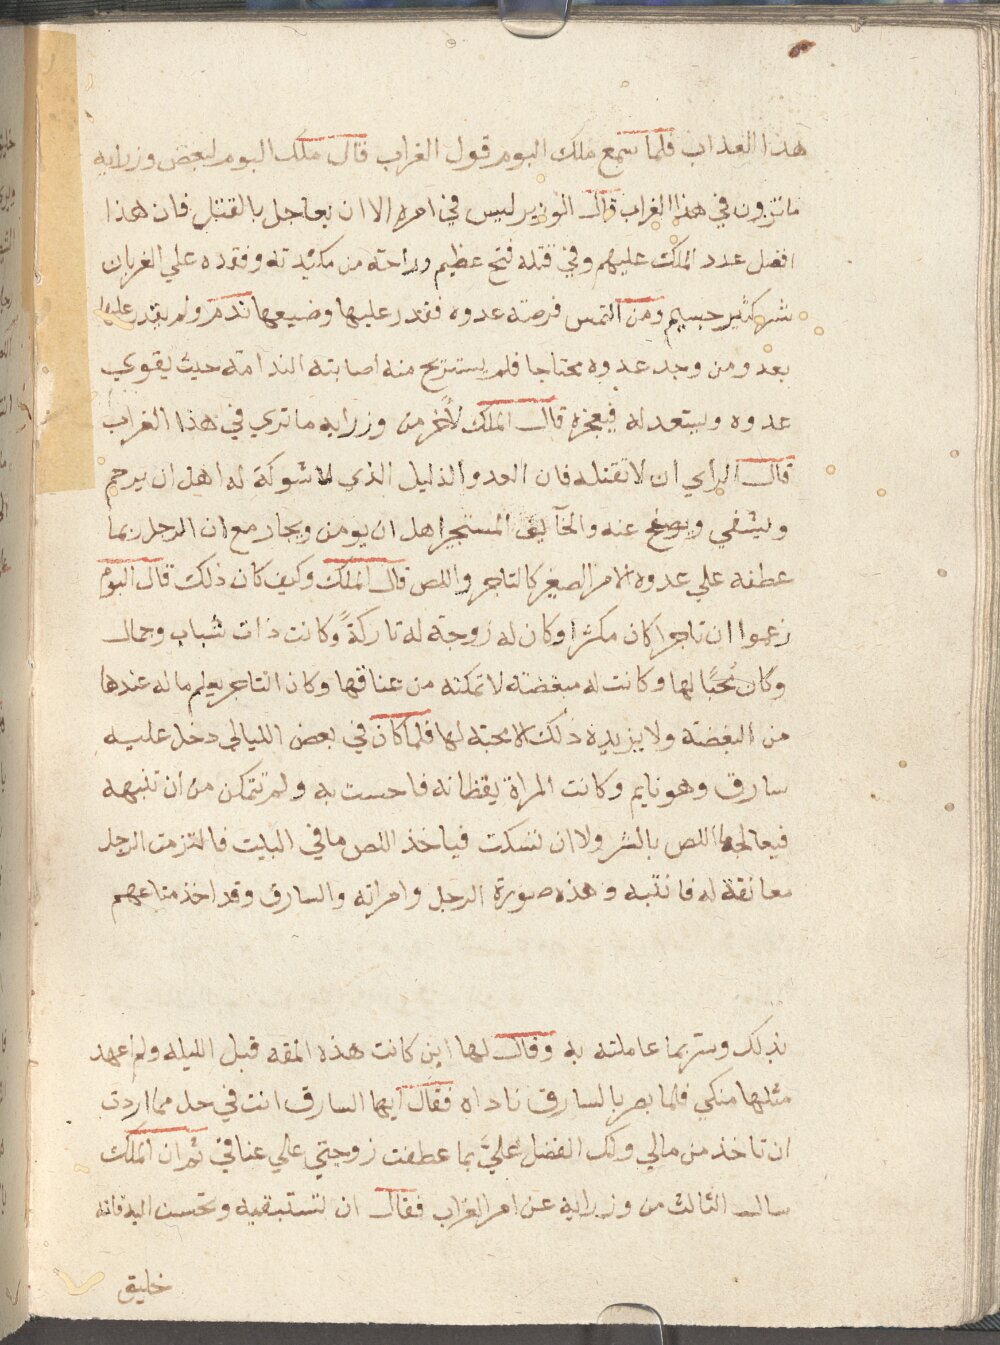 هذا العذاب فلما سمع ملك البوم قول الغراب قال ملك البوم لبعض وزرايه
ماترون في هذا الغراب قال الوزير ليس في امره الا ان يعاجل بالقتل فان هذا
افضل عدد الملك عليهم وفي قتله فتح عظيم وراحة من مكيدته وفقده علي الغربان
شهكثير جسيم ومن التمس فرصة عدوه فقدر عليها وضيعها ندم ولم يقدر عليها
بعد ومن وجد عدوه محتاجا فلم يستريح منه اصابته الندامة حيث يقوي
عدوه ويستعد له فيعجزه قال الملك لأخر من وزرايه ماتري في هذا الغراب
قال الراي ان لاتقتله فان العدو الذليل الذي لا شوكة له اهل ان يرحم
ويشفي ويصفح عنه والخايف المستجير اهل ان يومن ويجار مع ان الرجل ربما
عطفه علي عدوه الامر الصغير كالتاجر واللص قال الملك وكيف كان ذلك قال البوم
زعموا ان تاجرا كان مكثرا وكان له زوجة له تاركةً وكانت ذات شباب وجمال
وكان مُحبًا لها وكانت له مبغضة لا تمكنه من عناقها وكان التاجر يعلم ماله عندها
من البغضة ولا يزيده ذلك الا محبة لها فلما كان في بعض الليالي دخل عليه
سارق وهو نايم وكانت المراة يقظانه فاحست به ولم تتمكن من ان تنبهه
فيعالجها اللص بالشر ولا ان تسكت فياخذ اللص مافي البيت فالتزمت الرجل
معانقة له فانتبه وهذه صورة الرجل وامراته والسارق وقد اخذ متاعهم
بذلك وسر بما عاملته به وقال لها اين كانت هذه المقه قبل الليله ولم اعهد
مثلها منكي فلما بصر بالسارق ناداه فقال ايها السارق انت في حل مما اردت
ان تاخذ من مالي ولك الفضل عليَّ بما عطفت زوجتي علي عناقي ثم ان الملك
سال الثالث من وزرايه عن امر الغراب فقال ان تستبقيه وتحسن اليه فانه
خليق